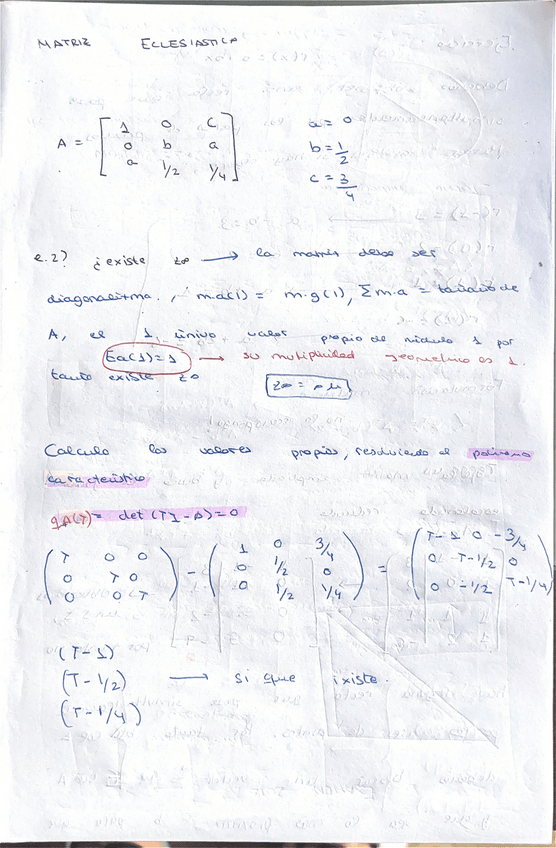 MATRIZ ECLESIASTICA
A = [ 1 0 C
0 b a
a 1/2 1/4 ]
a = 0
b = 1/2
c = 3/4
e.2) ¿existe z∞ → la matriz debe ser
diagonalitzma., m.a(1) = m.g(1), Σm.a = tamaño de
A, el 1, único valor propio de módulo 1 por
Ea(1)=1 → su multiplicidad geometrica es 1.
tanto existe z∞
z∞ = ρμ
Calculo los valores propios, resolviendo el polinomo
característico
qA(T) = det (T1 - A) = 0
( T 0 0
0 T 0
0 0 T ) - ( 1 0 3/4
0 1/2 0
0 1/2 1/4 ) = ( T-1 0 -3/4
0 T-1/2 0
0 -1/2 T-1/4 )
(T-1)
(T-1/2) → si que existe.
(T-1/4)